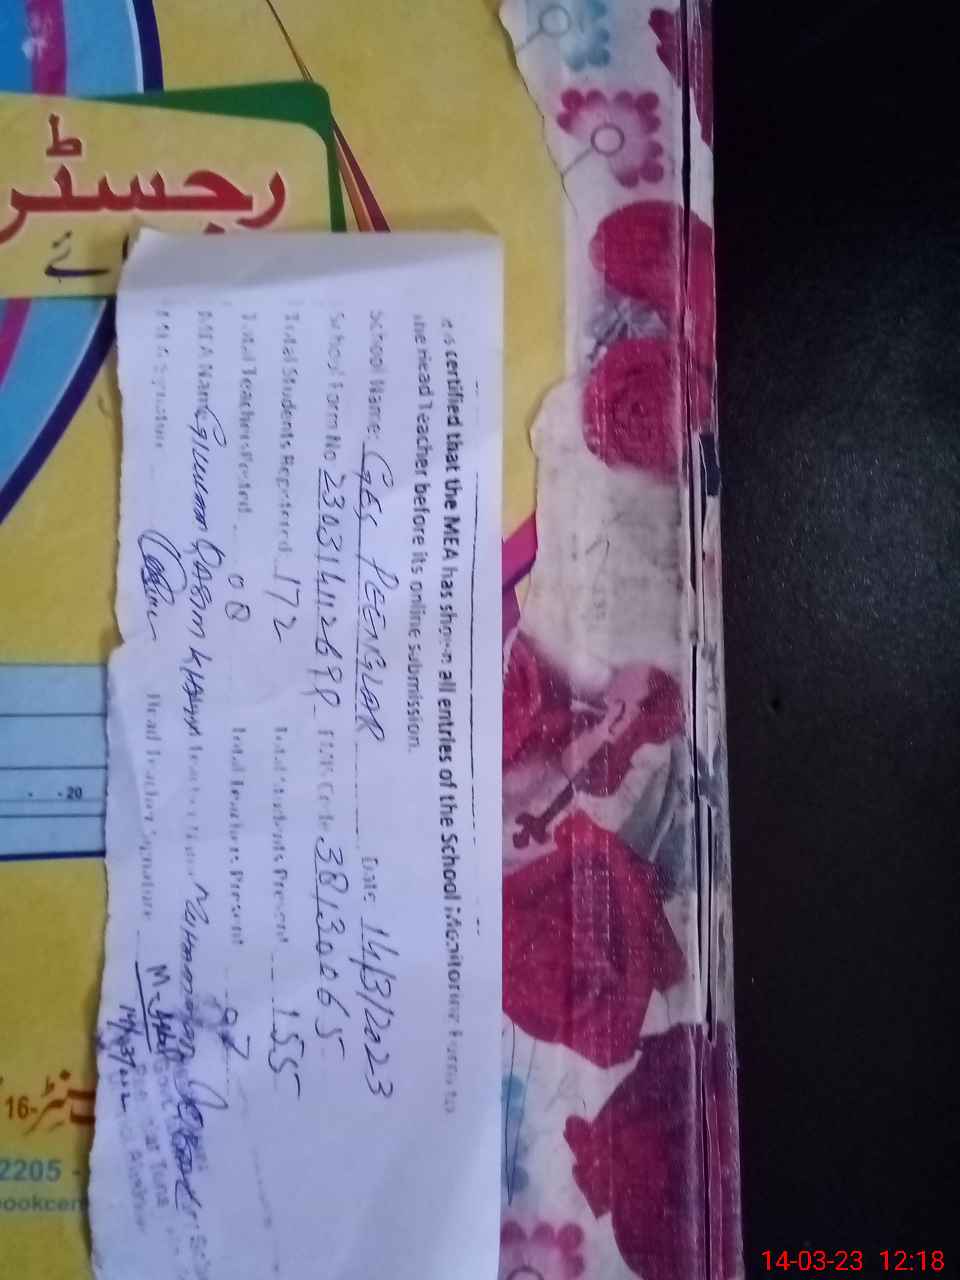 رجسٹر
certified that the MEA has shown all entries of the School Monitoring Form to
the Head Teacher before its online submission.
School Name: GES PEENGLAR Date 14/3/2023
School Form No 230314112699 EMIS Code 38130065
Total Students Registered 172 Total Students Present 155
Total Teachers Posted 08 Total Teachers Present 07
MEA Name Ghulam Qasim Khan
MEA Signature Head Teacher Signature
- - 20
16-
2205 -
14-03-23 12:18